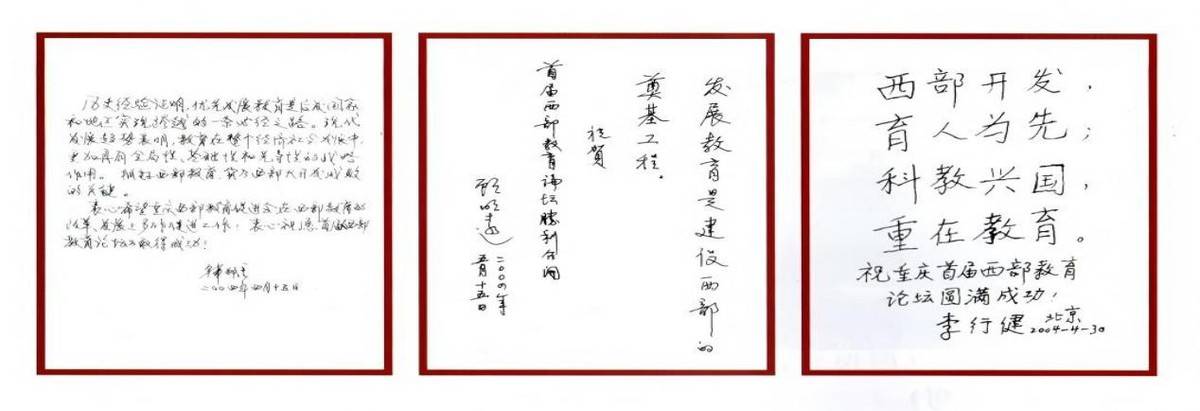 历史经验证明,优先发展教育是后发国家
和地区实现跨越的一条必经之路。现代
发展趋势表明,教育在整个经济社会发展中,
更加具有全局性、基础性和先导性的战略
作用。抓好西部教育,实为西部大开发成败
的关键。
衷心希望重庆西部教育促进会在西部教育的
改革、发展上多作促进工作!衷心祝愿首届西部
教育论坛取得成功!
二〇〇四年四月十五日
发展教育是建设西部的
奠基工程。
祝賀
首届西部教育論坛勝利召開
顾明远
二〇〇四年
五月十五日
西部开发,
育人为先;
科教兴国,
重在教育。
祝重庆首届西部教育
论坛圆满成功!
李行健 北京
2004-4-30